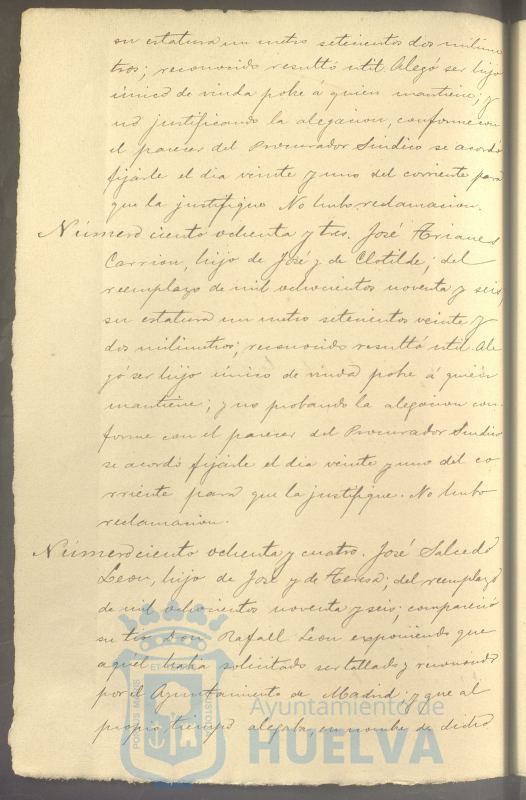 su estatura un metro setecientos dos milime
tros; reconocido resultó util. Alegó ser hijo
único de viuda pobre a quien mantiene; y
no justificando la alegacion, conforme con
el parecer del Procurador Sindico se acordó
fijarle el dia veinte y uno del corriente para
que la justifique. No hubo reclamacion.
Número ciento ochenta y tres. José Arianes
Carrion, hijo de José y de Clotilde; del
reemplazo de mil ochocientos noventa y seis
su estatura un metro setecientos veinte y
dos milimetros; reconocido resultó util. Ale
gó ser hijo único de viuda pobre á quien
mantiene; y no probando la alegacion con
forme con el parecer del Procurador Sindico
se acordó fijarle el dia veinte y uno del co
rriente para que la justifique. No hubo
reclamacion.
Número ciento ochenta y cuatro. José Salcedo
Leon, hijo de José y de Teresa; del reemplazo
de mil ochocientos noventa y seis; compareció
su tio Don Rafael Leon exponiendo que
aquel habia solicitado ser tallado y reconocido
por el Ayuntamiento de Madrid; y que al
propio tiempo alegaba, en nombre de dicho
Ayuntamiento de
HUELVA
PORTUS MARIS
ET
CUSTODIA